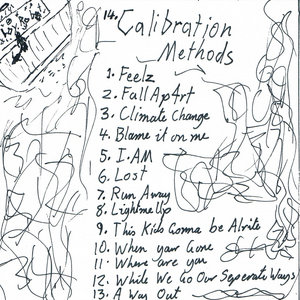 14. Calibration
Methods
1. Feelz
2. Fall Ap4rt
3. Climate Change
4. Blame it on me
5. I AM
6. Lost
7. Run Away
8. Light me Up
9. This Kids Gonna be Alrite
10. When your Gone
11. Where are you
12. While We Go Our Seperate Ways
13. A Way Out